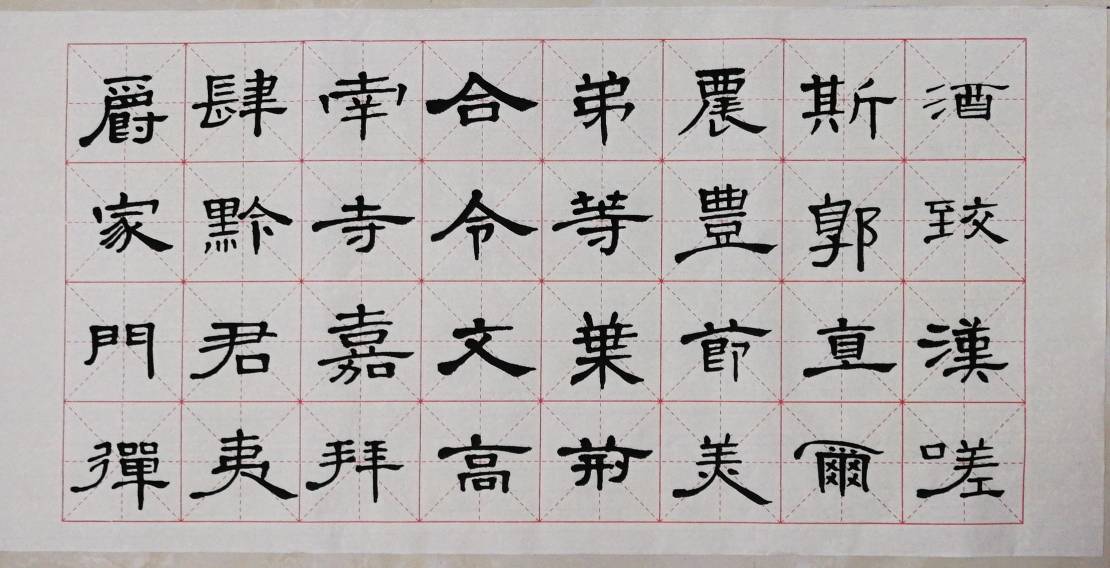 酒致漢嗟
斯郭直爾
農豊節美
弟等葉荊
合令文高
宰寺嘉拜
肆黔君夷
爵家門彈